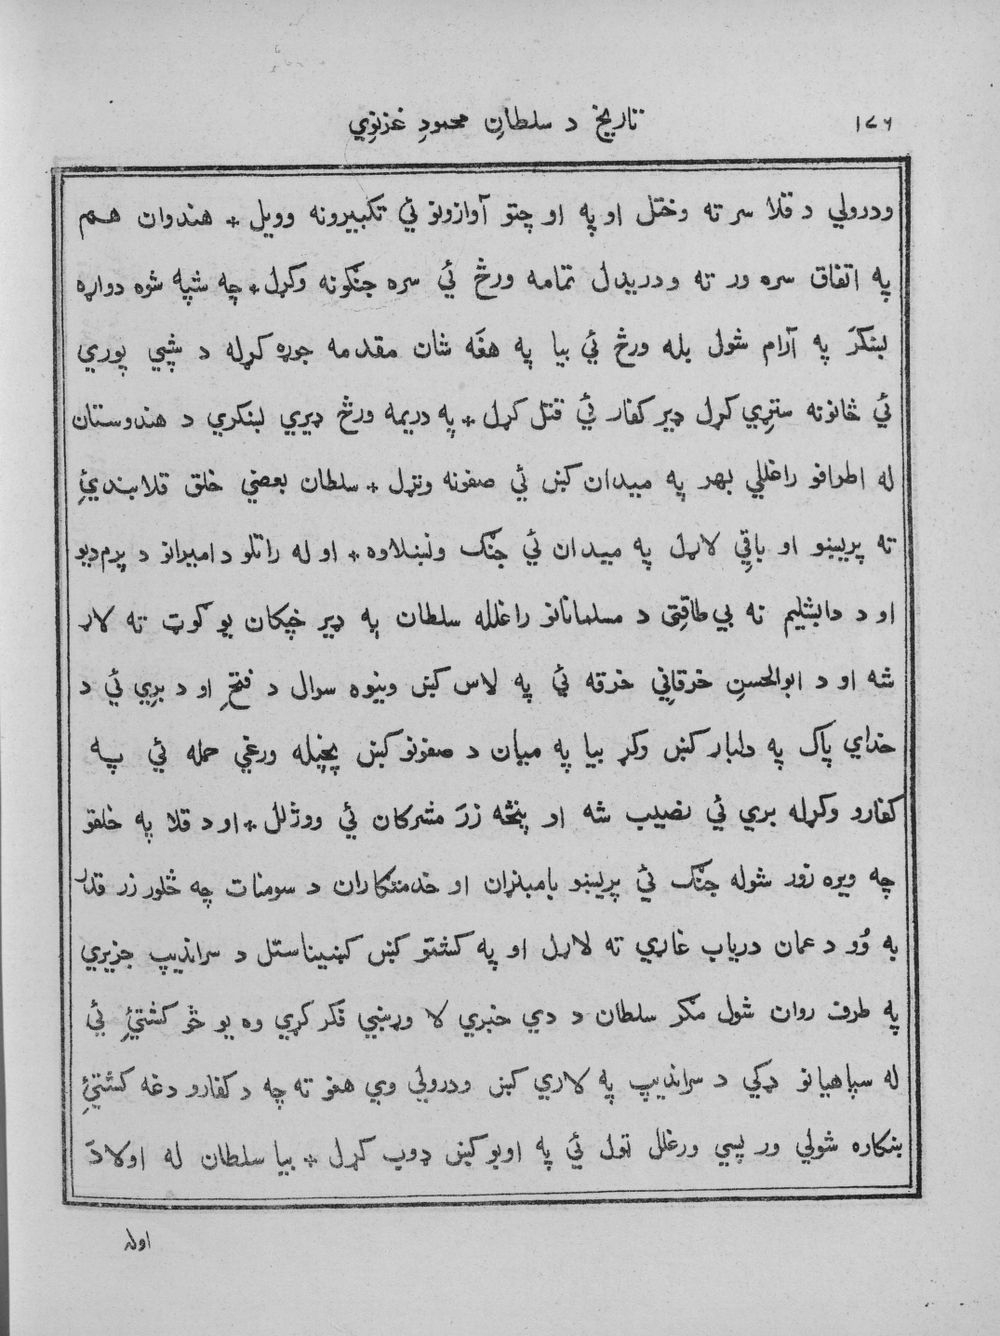 ١٧٦ تاریخ د سلطانِ محمودِ غزنوِي
ودرولي د قلا سر ته وختل او په او چتو آوازونو ئي تکبیرونه وویل * هندوان هم
په اتفاق سره ور ته ودریدل تمامه ورځ ئي سره جنګونه وکړل * چه شپه شوه دواړه
لښکرَ په آرام شول بله ورځ ئي بیا په هغَه شان مقدمه جوړه کړله د شپي پوري
ئي ځانونه ستړِي کړل ډیر کفار ئي قتل کړل * په دریمه ورځ ډیري لښکري د هندوستان
له اطرافو راغللي بهر په میدان کښ ئي صفونه وتړل * سلطان بعضي خلق قلابندیئِ
ته پریښو او باقِي لاړل په میدان ئي جنګ ونښلاوه * او له راتلو د امیرانو د پرم‌دیو
او د دابشلیم نه بي طاقِتی د مسلمانانو راغلله سلطان په ډیر خپکان یو کوټ ته لاړ
شه او د ابوالحسنِ خرقانِي خرقه ئي په لاس کښ وینوه سوال د فتحِ او د برِي ئي د
خدایِ پاک په دلبار کښ وکړ بیا په میان د صفونو کښ پخپله ورغي حمله ئي په
کفارو وکړله بري ئي نصیب شه او پنځه زرَ مشرکان ئي ووژلل * او د قلا په خلقو
چه ویره زور شوله جنګ ئي پریښو بامبنړان او خدمتګاران د سومنات چه څلور زر قدر
به وُو د عمان دریاب غاړي ته لاړل او په کشتو کښ کښیناستل د سراندیپ جزیري
په طرف روان شول مګر سلطان د دي خبري لا وړنبي فکر کړي وه یو څو کشتیئِ ئي
له سپاهیانو ډکي د سراندیپ په لاري کښ ودرولي وي هغو ته چه د کفارو دغه کشتیئِ
ښکاره شولي ور پسي ورغلل ټول ئي په اوبو کښ ډوب کړل * بیا سلطان له اولادَ
اوله